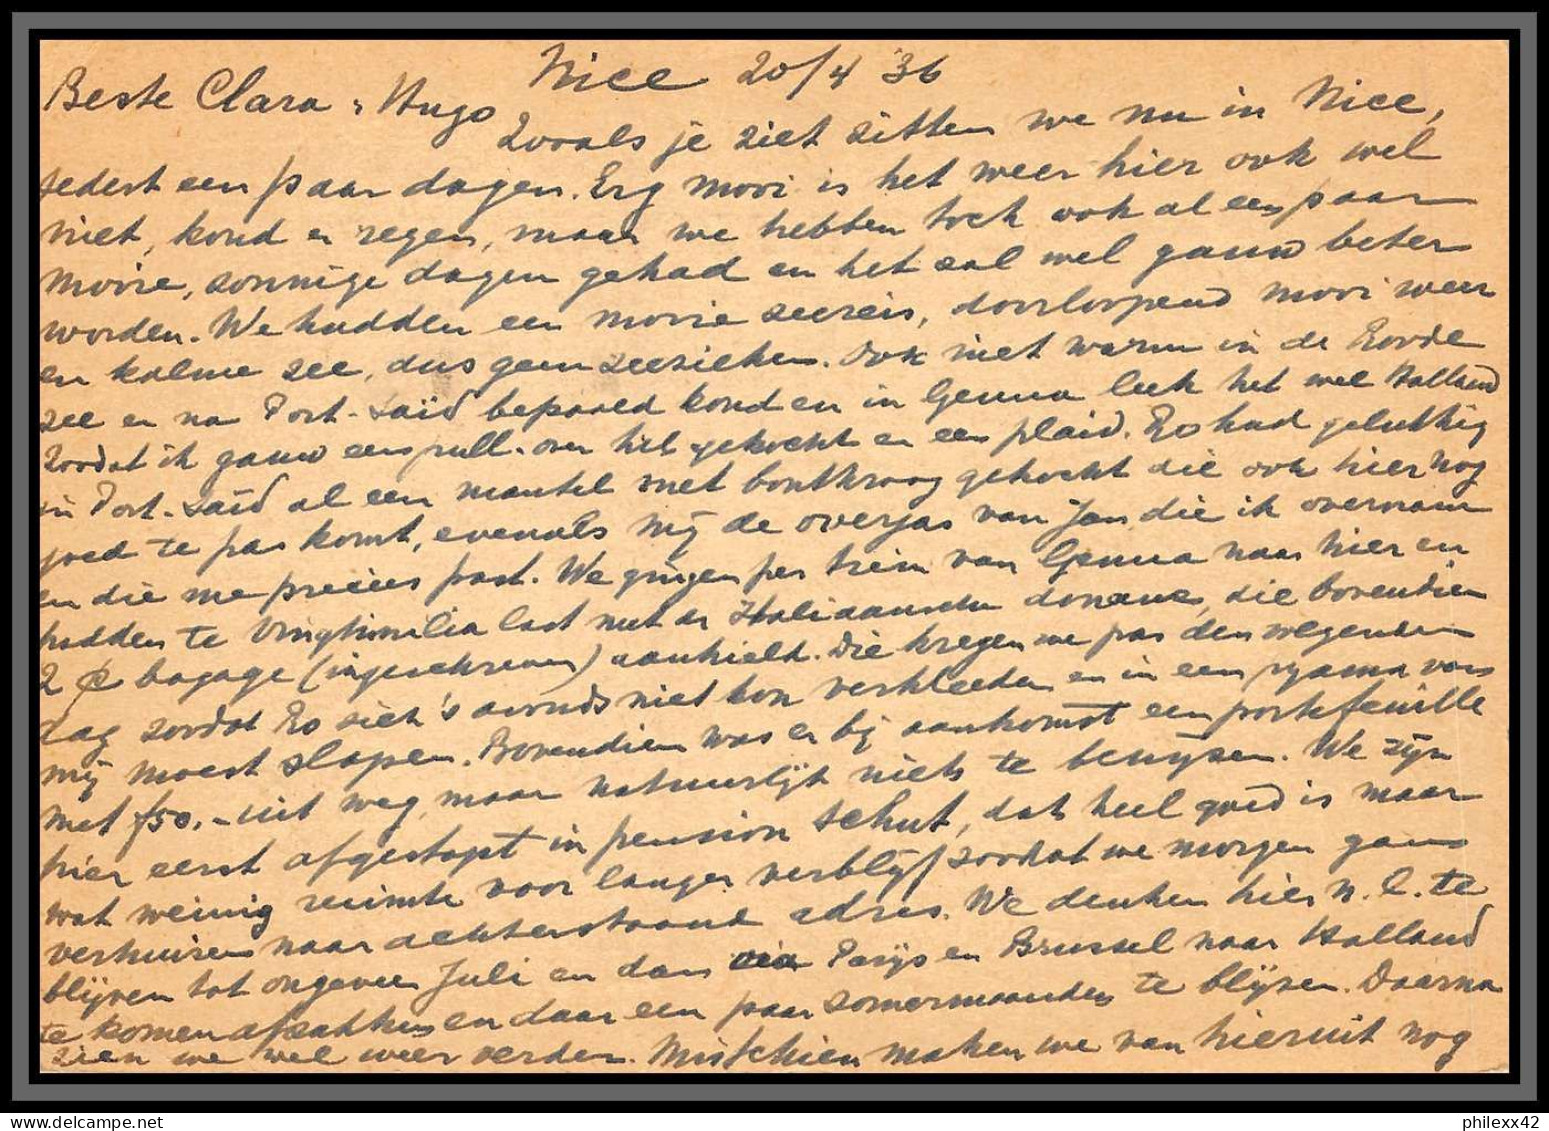 Nice 20/4 '36
Beste Clara & Hugo
Zooals je ziet zitten we nu in Nice,
sedert een paar dagen. Erg mooi is het weer hier ook wel
niet, koud en regen, maar we hebben toch ook al een paar
mooie, zonnige dagen gehad en het zal wel gauw beter
worden. We hadden een mooie zeereis, doorloopend mooi weer
en kalme zee, dus geen zeeziekten. Ook niet warm in de Roode
zee en na Port-Saïd bepaald koud en in Genua leek het wel Holland
zoodat ik gauw een pull-over heb gekocht en een plaid. Ro had gelukkig
in Port-Saïd al een mantel met bontkraag gekocht die ook hier nog
goed te pas komt, evenals mij de overjas van Jan, die ik overnam
en die me precies past. We gingen per trein van Genua naar hier en
hadden te Vingtimilia last met de Italiaansche douane, die bovendien
2 c bagage (ingeschreven) aanhield. Die kregen we pas den volgenden
dag zoodat Ro zich 's avonds niet kon verkleeden en in een pyama van
mij moest slapen. Bovendien was er bij aankomst een portefeuille
met f50.- uit weg, maar natuurlijk niets te bewijzen. We zijn
hier eerst afgestapt in pension Schut, dat heel goed is maar
wat weinig ruimte voor langer verblijf zoodat we morgen gaan
verhuizen naar achterstaand adres. We denken hier n.l. te
blijven tot ongeveer Juli en dan via Parijs en Brussel naar Holland
te komen afzakken en daar een paar zomermaanden te blijven. Daarna
zien we wel weer verder. Misschien maken we van hieruit nog
philexx42